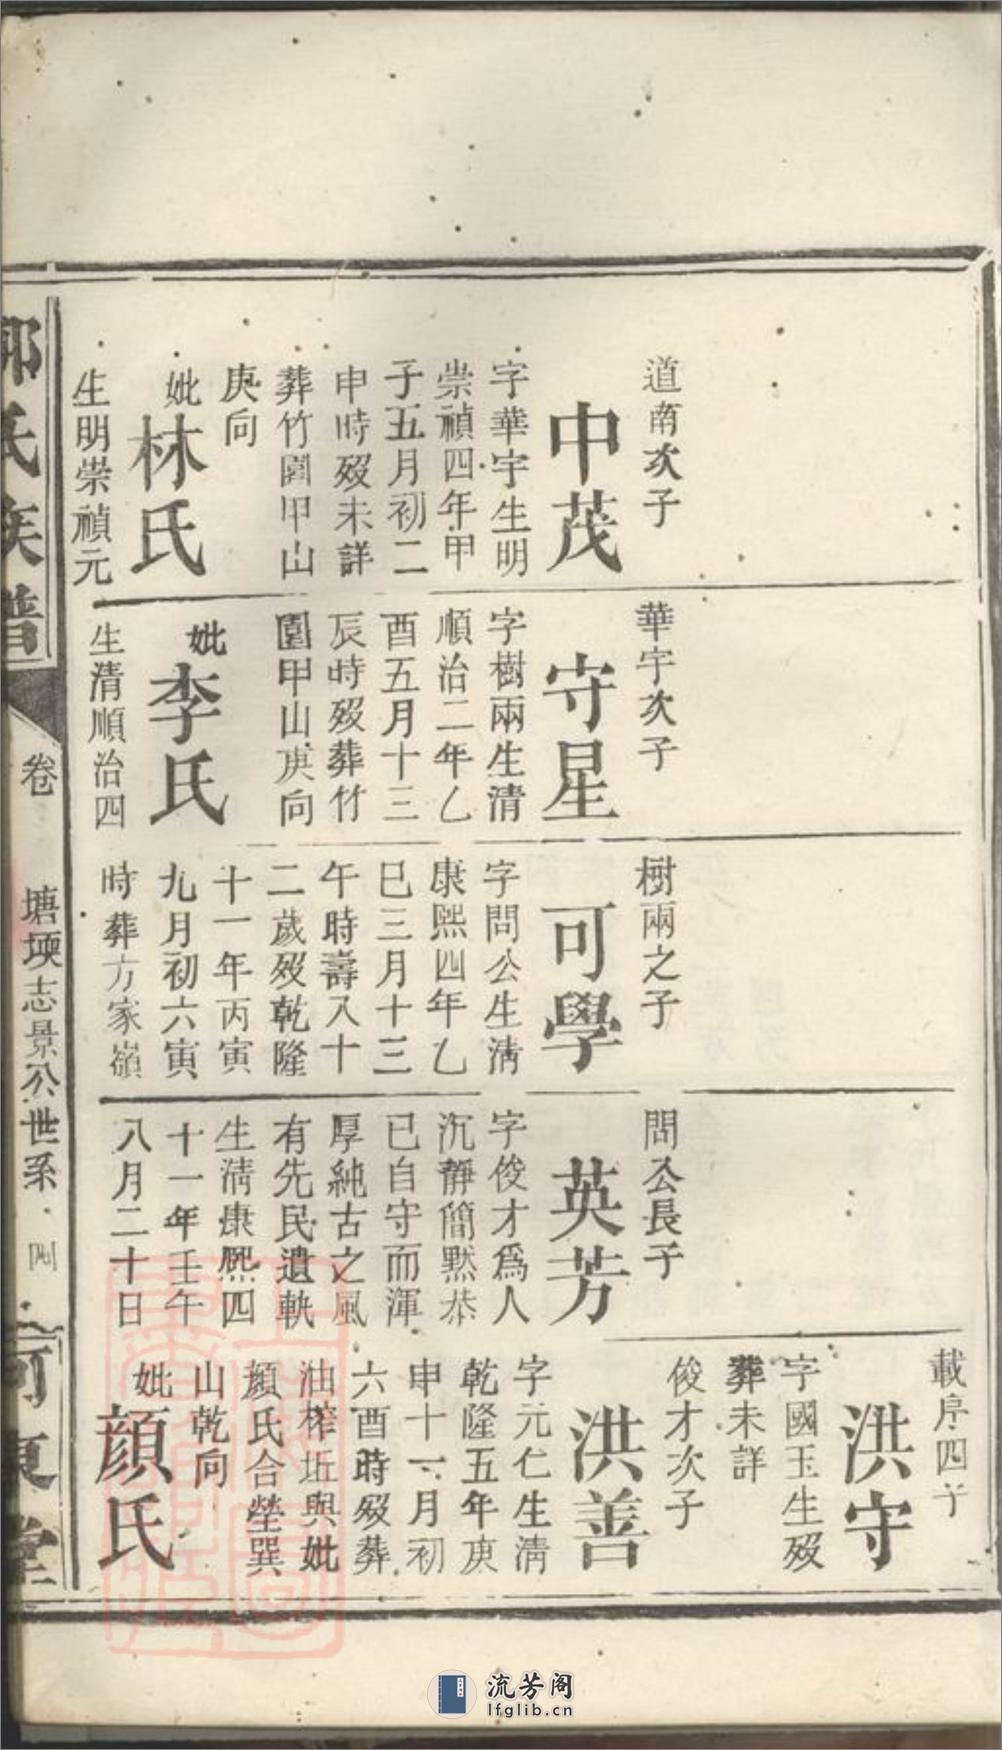 道南次子
中茂
字華宇生明
崇禎四年甲
子五月初二
申時歿未詳
葬竹園甲山
庚向
妣
林氏
生明崇禎元
華宇次子
守星
字樹兩生清
順治二年乙
酉五月十三
辰時歿葬竹
園甲山庚向
妣
李氏
生清順治四
樹兩之子
可學
字問公生淸
康熙四年乙
巳三月十三
午時壽八十
二歲歿乾隆
十一年丙寅
九月初六寅
時葬方家嶺
問公長子
英芳
字俊才爲人
沉靜簡默恭
已自守而渾
厚純古之風
有先民遺軼
生淸康熙四
十一年壬午
八月二十日
載序四子
洪守
字國玉生歿
葬未詳
俊才次子
洪善
字元仁生淸
乾隆五年庚
申十一月初
六酉時歿葬
油榨坵與妣
顏氏合塋巽
山乾向
妣
顏氏
氏族譜
卷
塘堧志景公世系
四
堂
流芳阁
lfglib.cn